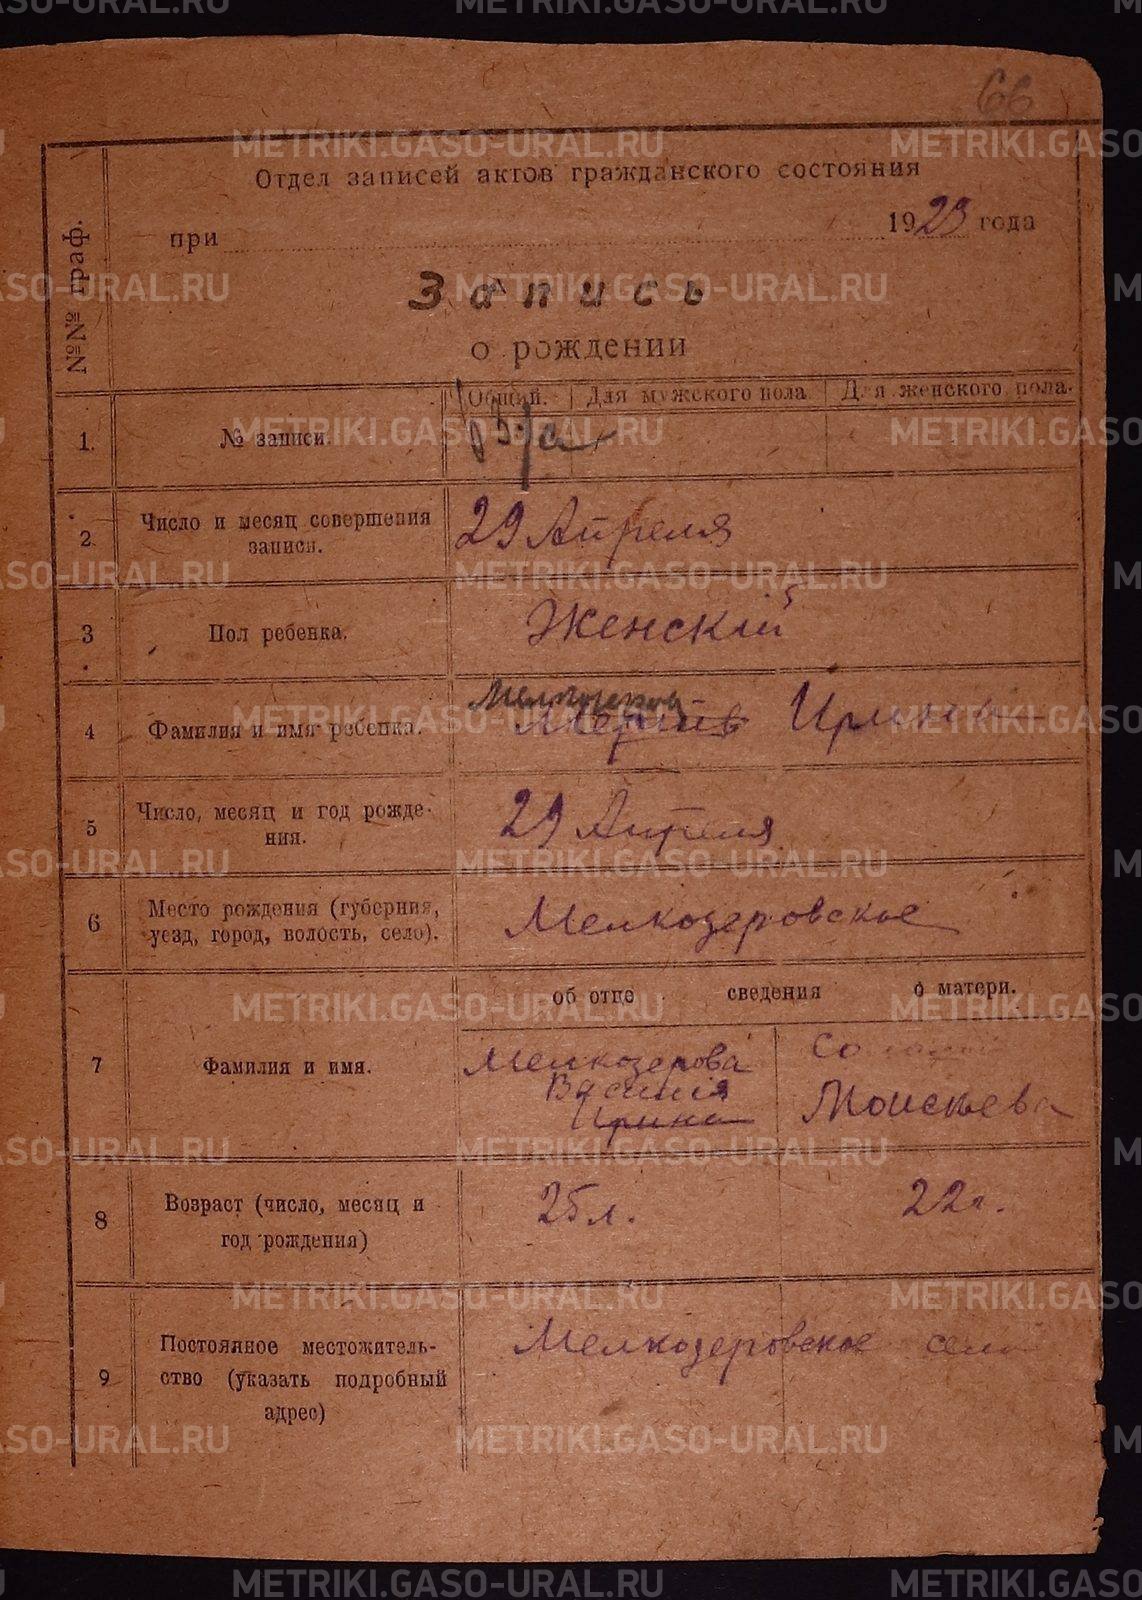 66
Отдел записей актов гражданского состояния
при 1923 года
Запись
о рождении
№№ граф.
Общий. Для мужского пола Для женского пола.
1. № записи.
2. Число и месяц совершения
записи.
29 Апреля
3 Пол ребенка. Женскій
4 Фамилия и имя ребенка. Ирина
5 Число, месяц и год рожде-
ния.
29 Апреля
6 Место рождения (губерния,
уезд, город, волость, село).
Мелкозеровское
об отце сведения о матери.
7 Фамилия и имя.
Мелкозерова
Василия Моисеева
Ирина
8 Возраст (число, месяц и
год рождения)
25 л. 22 л.
9 Постоянное местожитель-
ство (указать подробный
адрес)
Мелкозеровское село
METRIKI.GASO-URAL.RU